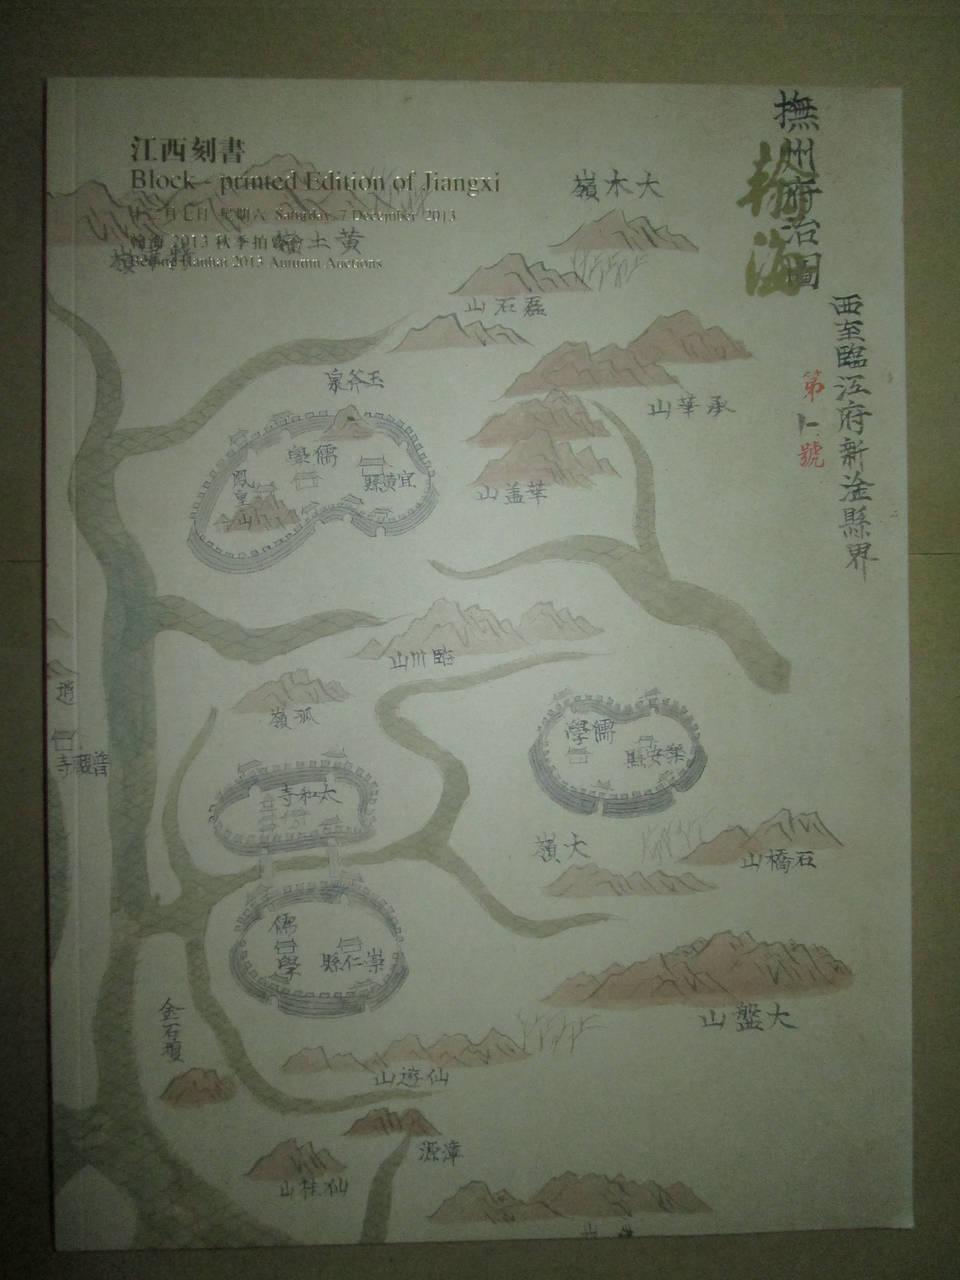 江西刻書
Block - printed Edition of Jiangxi
十二月七日 星期六 Saturday, 7 December 2013
翰海 2013 秋季拍賣會
Beijing Hanhai 2013 Autumn Auctions
撫州府治圖
翰海
西至臨江府新淦縣界
第
號
大木嶺
黃土嶺
磊石山
玉斧泉
承華山
華盖山
儒學
宜黃縣
鳳皇山
臨川山
孤嶺
儒學
樂安縣
普觀寺
太和寺
大嶺
石橋山
儒學
崇仁縣
大盤山
金石壇
仙遊山
漳源
仙桂山
山